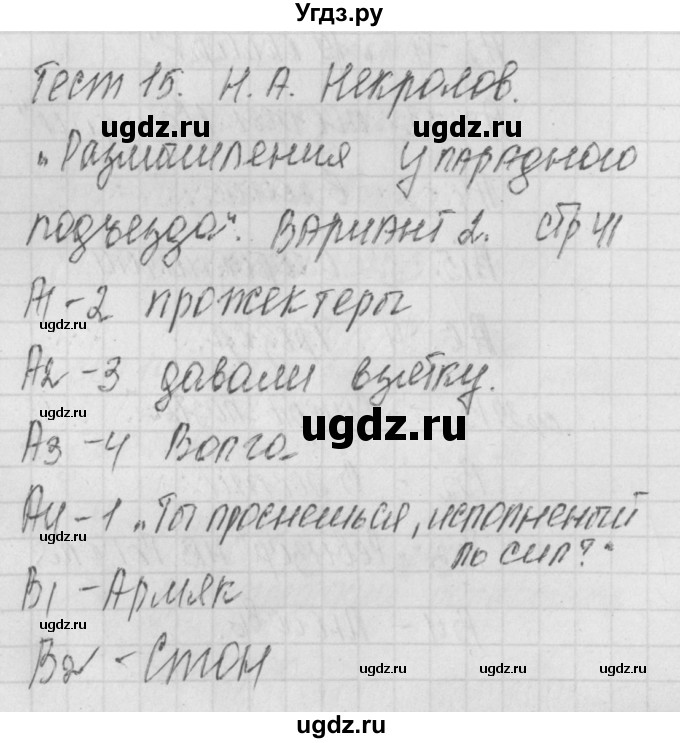 Угдз.ру
Тест 15. Н. А. Некрасов.
ugdz.ru
„Размышления у парадного
подъезда". Вариант 2. стр 41
ugdz.ru
А1 - 2 прожектеры
ugdz.ru
А2 - 3 давали взлетку.
ugdz.ru
ugdz.ru
А3 - 4 Волга
А4 - 1 „Ты проснешься, исполненый
ugdz.ru
ль сил?"
В1 - Армяк
ugdz.ru
В2 - Стон
ugdz.ru ugdz.ru
ugdz.ru